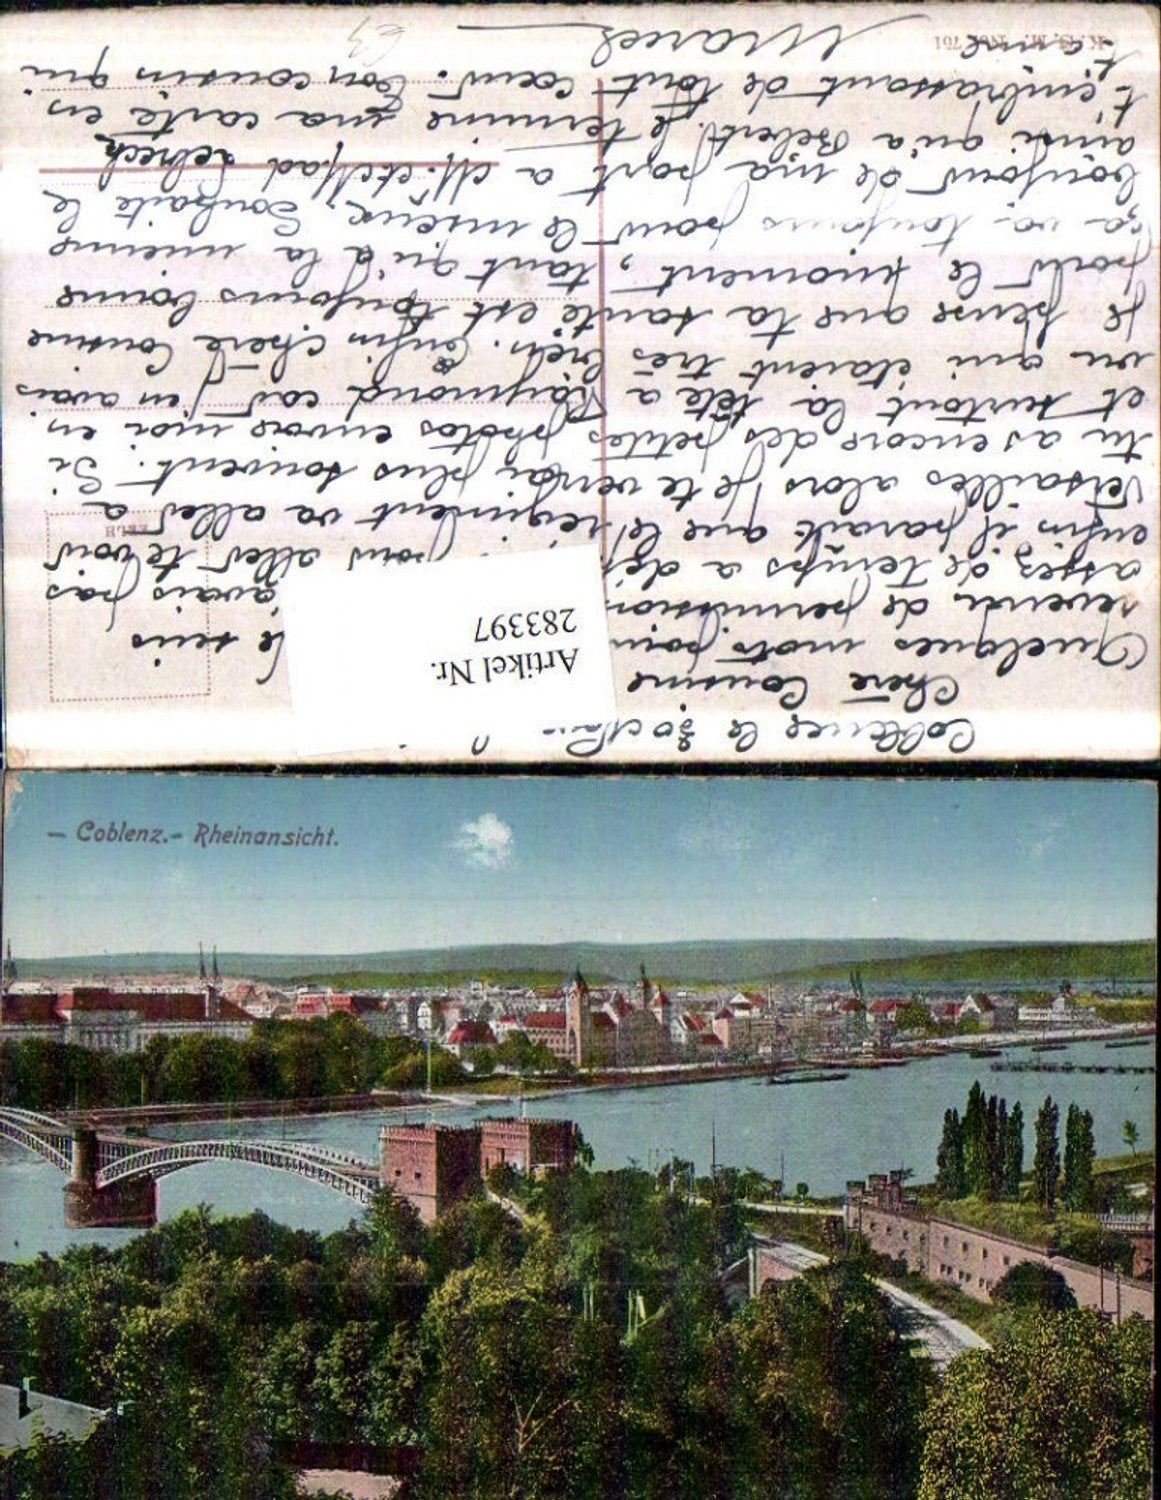 Coblence le
Chère Cousine
Quelques mots pour
revenu de permission
assez de temps a
enfin il parait que le
Versailles alors je te
tu as encore des petites
et surtout la tête a
vu qui étaient très
Je pense que ta santé est toujours bonne
pour le moment, tant qu'a la mienne
ça va toujours pour le mieux. Souhaite le
bonjour de ma part a
ainsi qu'a Robert. Je termine ma carte en
t'embrassant de tout cœur. Ton cousin qui
t'aime Marcel
Je suis
avais pas
pour aller te voir
régiment va aller a
plus souvent. Si
photos envoie moi en
Raymond car j'en avais
bien. Enfin chère Cousine
Artikel Nr.
283397
K. B. M. No. 751
63
- Coblenz.- Rheinansicht.